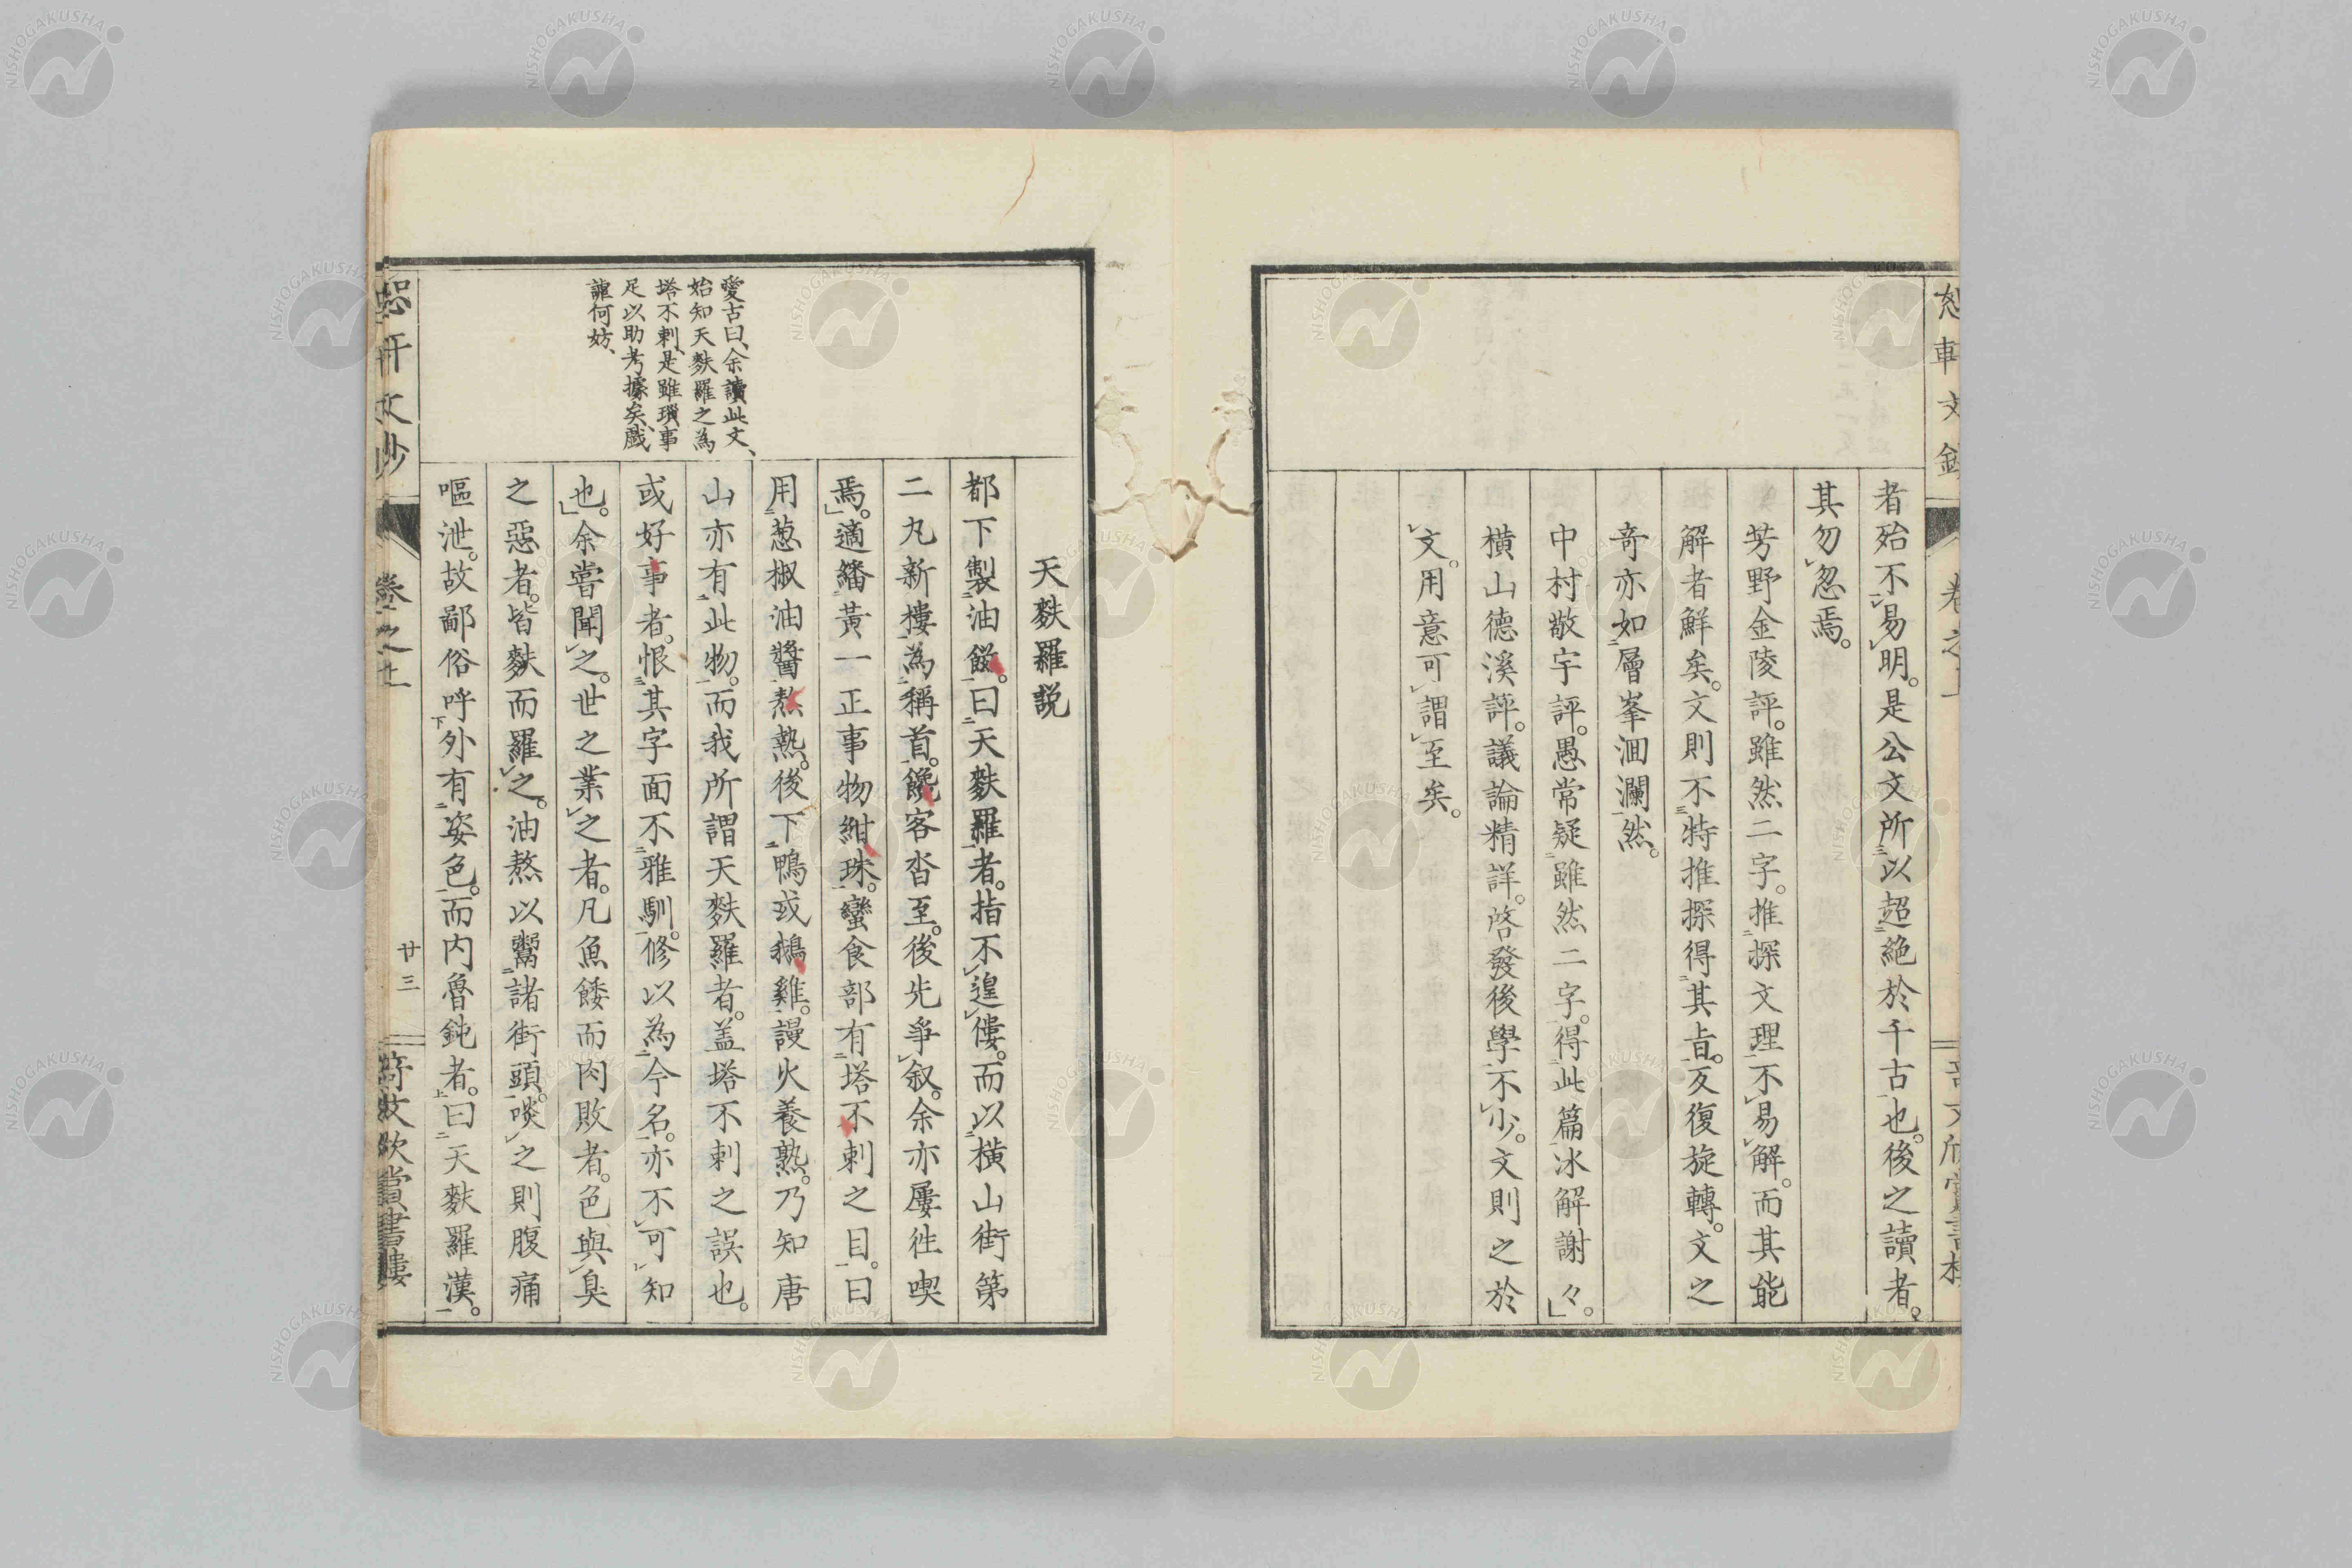 恕軒文鈔
卷之上
奇文欣賞書樓
者殆不易明。是公文所以超絶於千古也。後之讀者。
其勿忽焉。
芳野金陵評。雖然二字。推探文理不易解。而其能
解者鮮矣。文則不特推探得其旨。反復旋轉。文之
奇亦如層峯洄瀾然。
中村敬宇評。愚常疑雖然二字。得此篇冰解謝々。
橫山德溪評。議論精詳。啓發後學不少。文則之於
文。用意可謂至矣。
天麩羅説
都下製油餤。曰天麩羅者。指不遑僂。而以橫山街第
二丸新樓為稱首。饞客沓至。後先爭叙。余亦屢徃喫
焉。適繙黃一正事物紺珠。蠻食部有塔不剌之目。曰
用葱椒油醬熬熟。後下鴨或鵝雞。謾火養熟。乃知唐
山亦有此物。而我所謂天麩羅者。盖塔不剌之誤也。
或好事者。恨其字面不雅馴。修以為今名。亦不可知
也。余嘗聞之。世之業之者。凡魚餒而肉敗者。色與臭
之惡者。皆麩而羅之。油熬以鬻諸街頭。啖之則腹痛
嘔泄。故鄙俗呼外有姿色。而内魯鈍者。曰天麩羅漢。
愛古曰、余讀此文、
始知天麩羅之為
塔不剌、是雖瑣事
足以助考據矣、戲
謔何妨、
恕軒文鈔
卷之上
廿三
奇文欣賞書樓
NISHOGAKUSHA